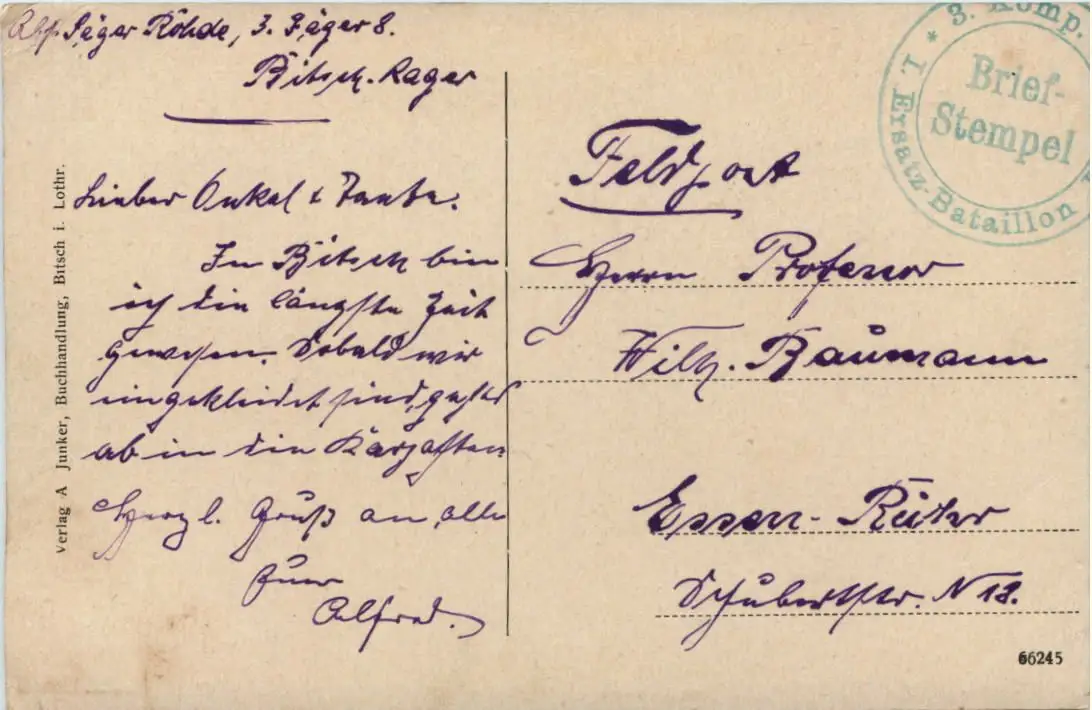 Abs. Jäger Rohde, 3. Jäger 8.
Bitsch-Lager
Lieber Onkel & Tante.
In Bitsch bin
ich die längste Zeit
gewesen. Sobald wir
eingekleidet sind, geht's
ab in die Karpathen.
Herzl. Gruß an alle
Euer
Alfred.
Verlag A Junker, Buchhandlung, Bitsch i. Lothr.
3. Komp.
I. Ersatz-Bataillon
Brief-
Stempel
Feldpost
Herrn Professor
Wilh. Baumann
Essen-Ruhr
Schubertstr. N 12.
66245